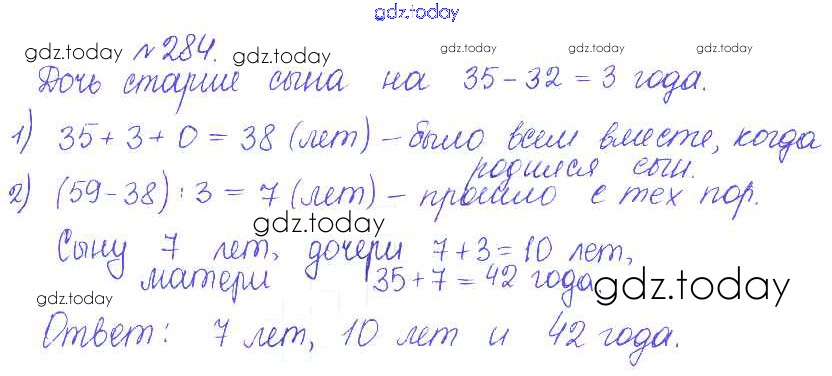 gdz.today
gdz.today № 284. gdz.today gdz.today gdz.today gdz.today
Дочь старше сына на 35 - 32 = 3 года.
1) 35 + 3 + 0 = 38 (лет) - было всем вместе, когда
родился сын.
2) (59 - 38) : 3 = 7 (лет) - прошло с тех пор.
gdz.today
Сыну 7 лет, дочери 7 + 3 = 10 лет,
матери 35 + 7 = 42 года.
gdz.today gdz.today
Ответ: 7 лет, 10 лет и 42 года.